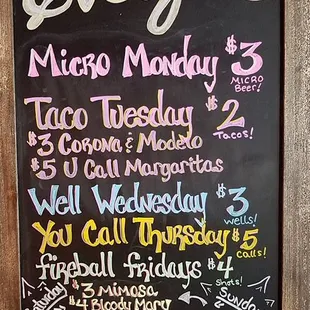 Micro Monday $3
Micro
Beer!
Taco Tuesday $2
Tacos!
$3 Corona & Modelo
$5 U Call Margaritas
Well Wednesday $3
Wells!
You Call Thursday $5
Calls!
fireball fridays $4
Shots!
Saturday
$3 Mimosa
$4 Bloody Mary
Sunday